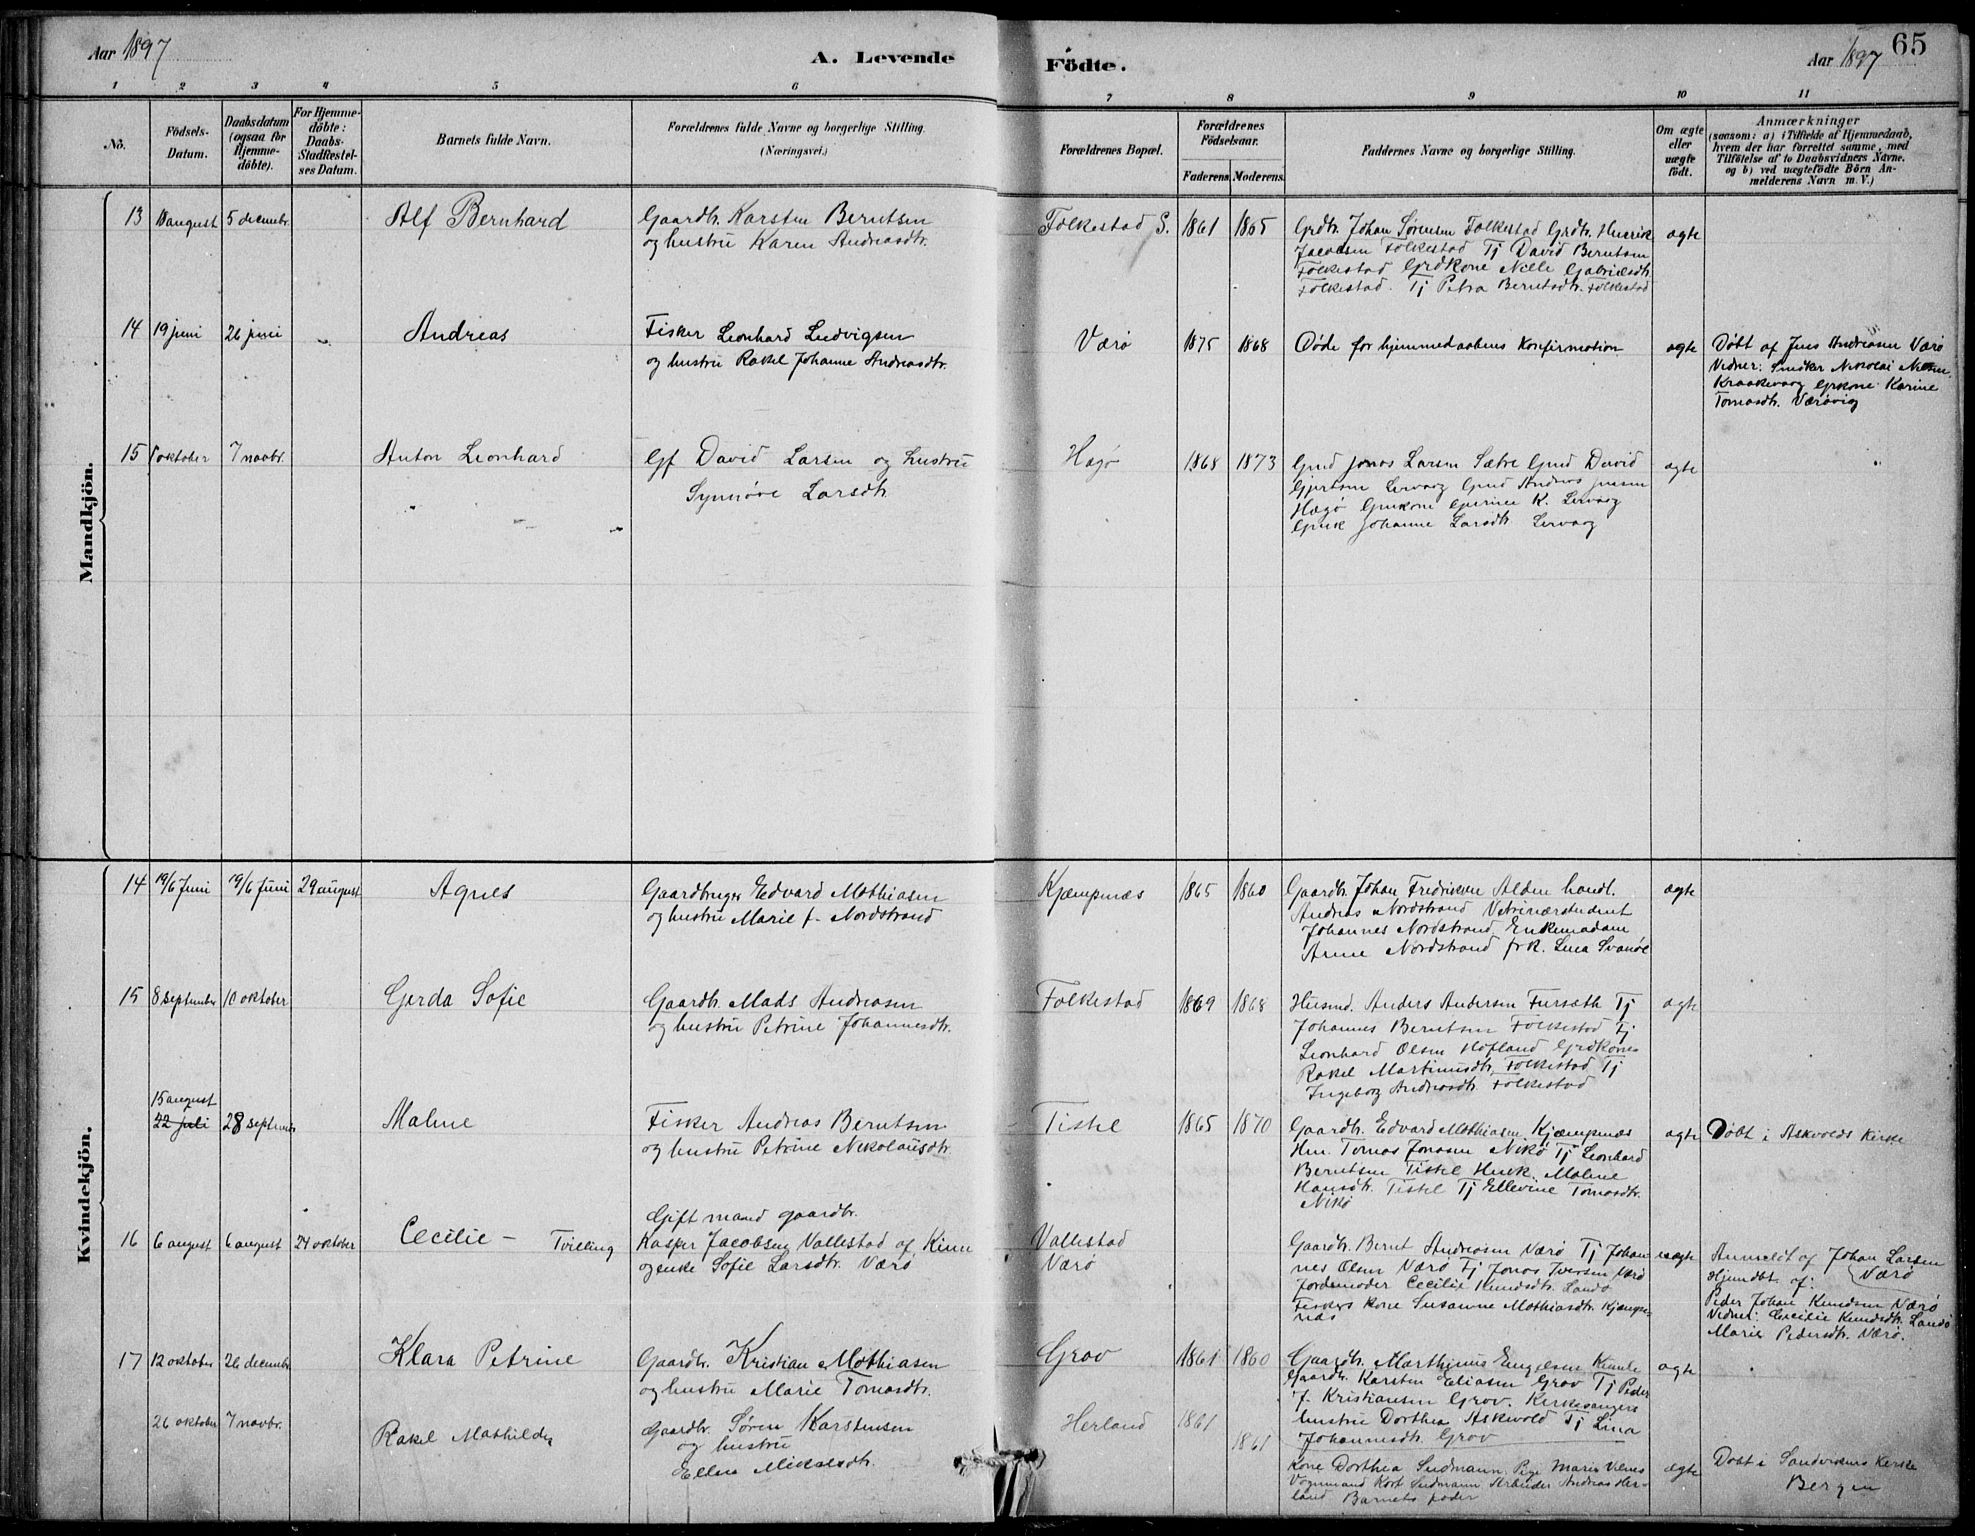 Aar 1897
A. Levende
Födte.
Aar 1897
65
1 2 3 4 5 6 7 8 9 10 11
No.
Födsels-
Datum.
Daabsdatum
(ogsaa for
Hjemme-
döbte).
For Hjemme-
döbte:
Daabs-
Stadfæstel-
ses Datum.
Barnets fulde Navn.
Forældrenes fulde Navne og borgerlige Stilling.
(Næringsvei.)
Forældrenes Bopæl.
Forældrenes
Födselsaar.
Faderens. Moderens.
Faddernes Navne og borgerlige Stilling.
Om ægte
eller
uægte
födt.
Anmærkninger
(saasom: a) i Tilfælde af Hjemmedaab,
hvem der har forrettet samme, med
Tilföielse af to Daabsvidners Navne.
og b) ved uægtefödte Börn An-
melderens Navn m. V.)
Mandkjön.
13 august 5 decembr. Alf Bernhard Gaardbr. Karsten Berntsen
og hustru Karen Andreasdtr.
Folkestad S. 1861 1865 Grdbr. Johan Sørensen Folkestad Grdbr. Henrik
Jacobsen Folkestad Tj David Berntsen
Folkestad Grdkone Nille Gabrielsdtr.
Folkestad. Tj Petra Berntsdtr. Folkestad
ægte
14 19 juni 26 juni Andreas Fisker Leonhard Ludvigsen
og hustru Rakel Johanne Andreasdtr.
Værø 1875 1868 Døde før hjemmedaabens Konfirmation ægte
Døbt af Jens Andreasen Værø
Vidner: Snedker Nikolai Nilsen
Kraakevaag Grkone Karine
Tomasdtr. Værøvig
15 oktober 7 novbr. Anton Leonhard Gf David Larsen og hustru
Synnøve Larsdtr
Hagø 1868 1873 Gmd Jonas Larsen Sætre Gmd David
Gjertsen Lervaag Gmd Andreas Jensen
Hagø Gmkone K. Lervaag
Gmk Johanne Larsdtr. Lervaag
ægte
Kvindekjön.
14 19/6 Juni 19/6 Juni 29 august Agnes Gaardbruger Edvard Mathiasen
og hustru Marie f. Nordstrand
Kjempenæs 1865 1860 Gaardb. Johan Fredriksen Alden handl.
Andreas Nordstrand Vetrinærstudent
Johannes Nordstrand, Enkemadam
Nordstrand frk. Lina Svanøe
ægte
15 8 september 10 oktober Gerda Sofie Gaardbr. Mads Andreasen
og hustru Petrine Johannesdtr.
Folkestad 1869 1868 Husmd. Anders Andersen Fursæth Tj
Johannes Berntsen Folkestad Tj
Leonhard Olsen Høfland Grdkone
Rakel Martinusdtr. Folkestad Tj
Ingeborg Andreasdtr. Folkestad
ægte
15 august
22 juli 28 septembr Malene Fisker Andreas Berntsen
og hustru Petrine Nikolausdtr.
Tistel 1865 1870 Gaardbr. Edvard Mathiasen Kjempenæs
Hm. Tomas Jonasen Nikø Tj Leonhard
Berntsen Tistel Husk. Malene
Hansdtr. Tistel Tj Ellevine Tomasdtr.
Nikø
ægte Døbt i Askvolds Kirke
16 6 august 6 august 24 oktober Cecilie - Tvilling
Gift mand gaardbr.
Kasper Jacobsen Vallestad af Kinn
og enke Sofie Larsdtr. Værø
Vallestad
Værø
Gaardbr. Bernt Andreasen Værø Tj Johan-
nes Olsen Værø Tj Jonas Iversen Værø
Jordemoder Cecilie Knudsdtr. Landø
Fiskers kone Susanne Mathiasdtr. Kjempe-
næs
uægte Anmeldt af Johan Larsen
Værø
Hjemdbt. af
Peder Johan Knudsen Værø
Vidner: Cecilie Knudsdtr. Landø
Marie Pedersdtr. Værø.
17 12 oktober 26 decembr Klara Petrine Gaardbr. Kristian Mathiasen
og hustru Marie Tomasdtr.
Grov 1861 1860 Gaardbr. Marthinus Engelsen
Gaardbr. Karsten Eliasen Grov Tj Peder
J. Kristiansen Grov. Kirkesangers
hustru Dorthea Askvold Tj Lina
Johannesdtr. Grov
ægte
26 oktober 7 novbr. Rakel Mathilde Gaardbr. Søren Karstensen
og hustru
Ellen Mikalsdtr.
Herland 1861 1861 Kone Dorthea Sudmann. Pige Marie Vilnes
Vognmand Kort Sudmann Arbeider Andreas Her-
land Barnets fader
ægte Døbt i Sandvikens Kirke
Bergen